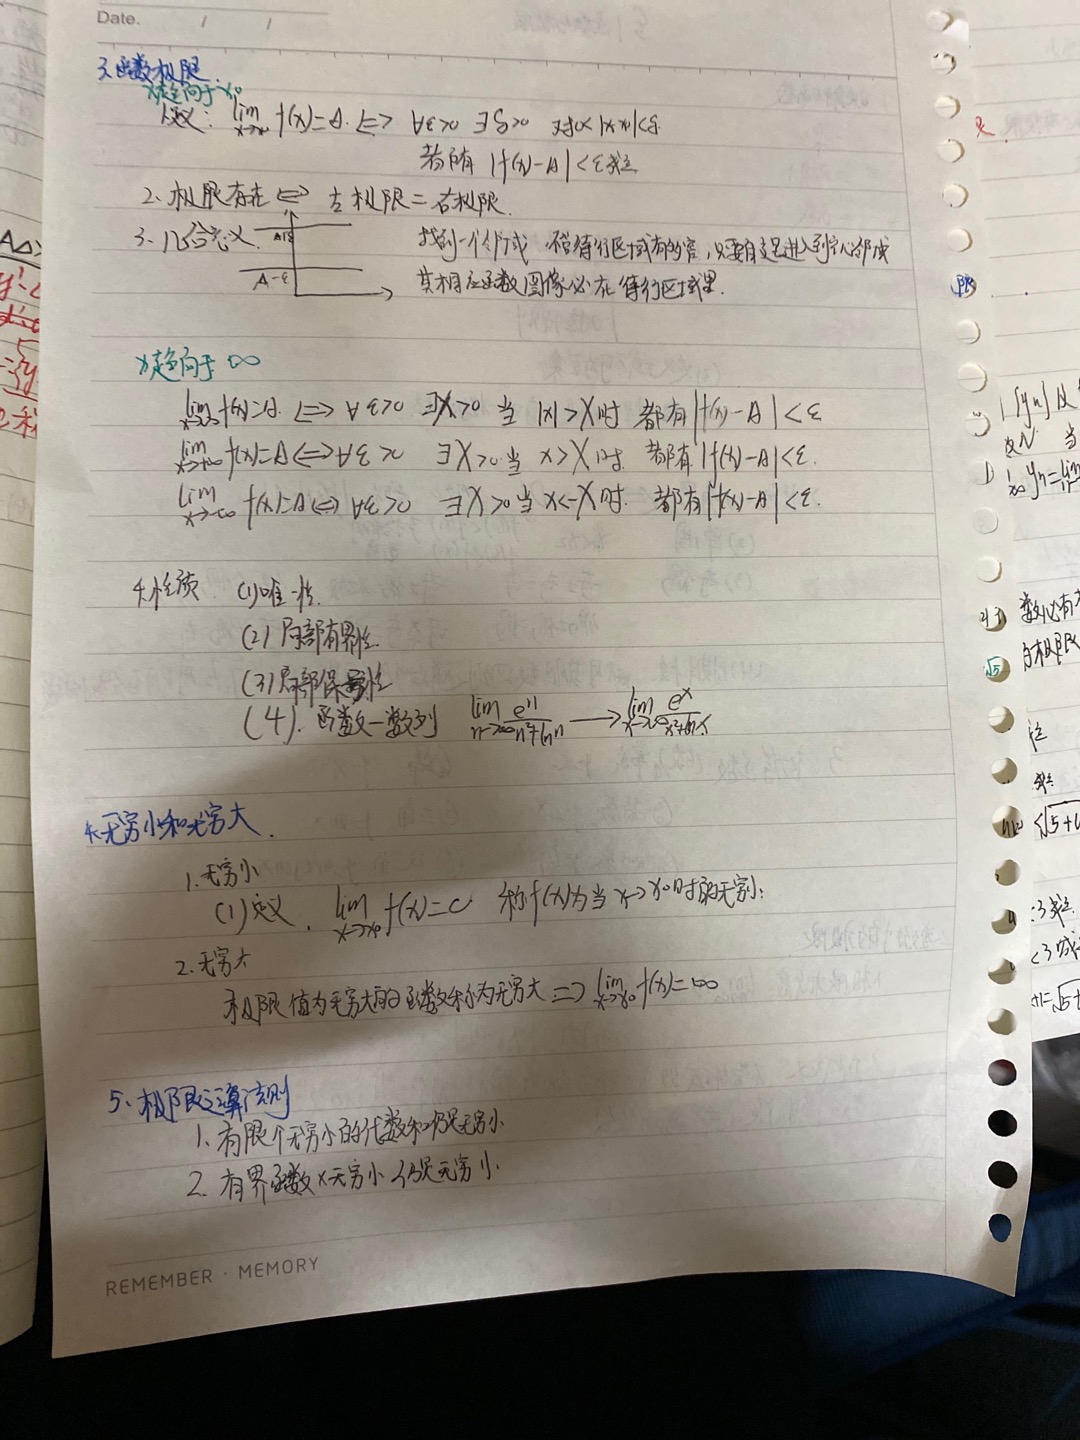 Date. / /
3.函数极限
x趋向于x₀
1.定义: lim x→x₀ f(x)=A. ⟺ ∀ε>0 ∃δ>0 对0<|x-x₀|<δ.
都有 |f(x)-A|<ε成立
2. 极限存在 ⟺ 左极限=右极限.
3. 几何意义. A+ε 找到一个邻域 不管带行区域有多窄, 只要自变量进入到该邻域
A-ε 其相应函数图像必在带行区域里.
x趋向于 ∞
lim x→∞ f(x)=A. ⟺ ∀ε>0 ∃X>0 当 |x|>X时 都有|f(x)-A|<ε
lim x→+∞ f(x)=A ⟺ ∀ε>0 ∃X>0 当 x>X时. 都有|f(x)-A|<ε.
lim x→-∞ f(x)=A ⟺ ∀ε>0 ∃X>0 当 x<-X时. 都有|f(x)-A|<ε.
4.性质 (1)唯一性.
(2)局部有界性
(3)局部保号性
(4). 函数—数列 lim n→∞ eⁿ/n²+ln n ⟶ lim x→∞ eˣ/x²+ln x
4.无穷小和无穷大.
1.无穷小
(1)定义. lim x→x₀ f(x)=0 称f(x)为当x→x₀时的无穷小
2.无穷大
极限值为无穷大的函数称为无穷大 ⟹ lim x→x₀ f(x)=∞
5.极限运算法则
1.有限个无穷小的代数和仍是无穷小
2.有界函数×无穷小仍是无穷小.
REMEMBER · MEMORY